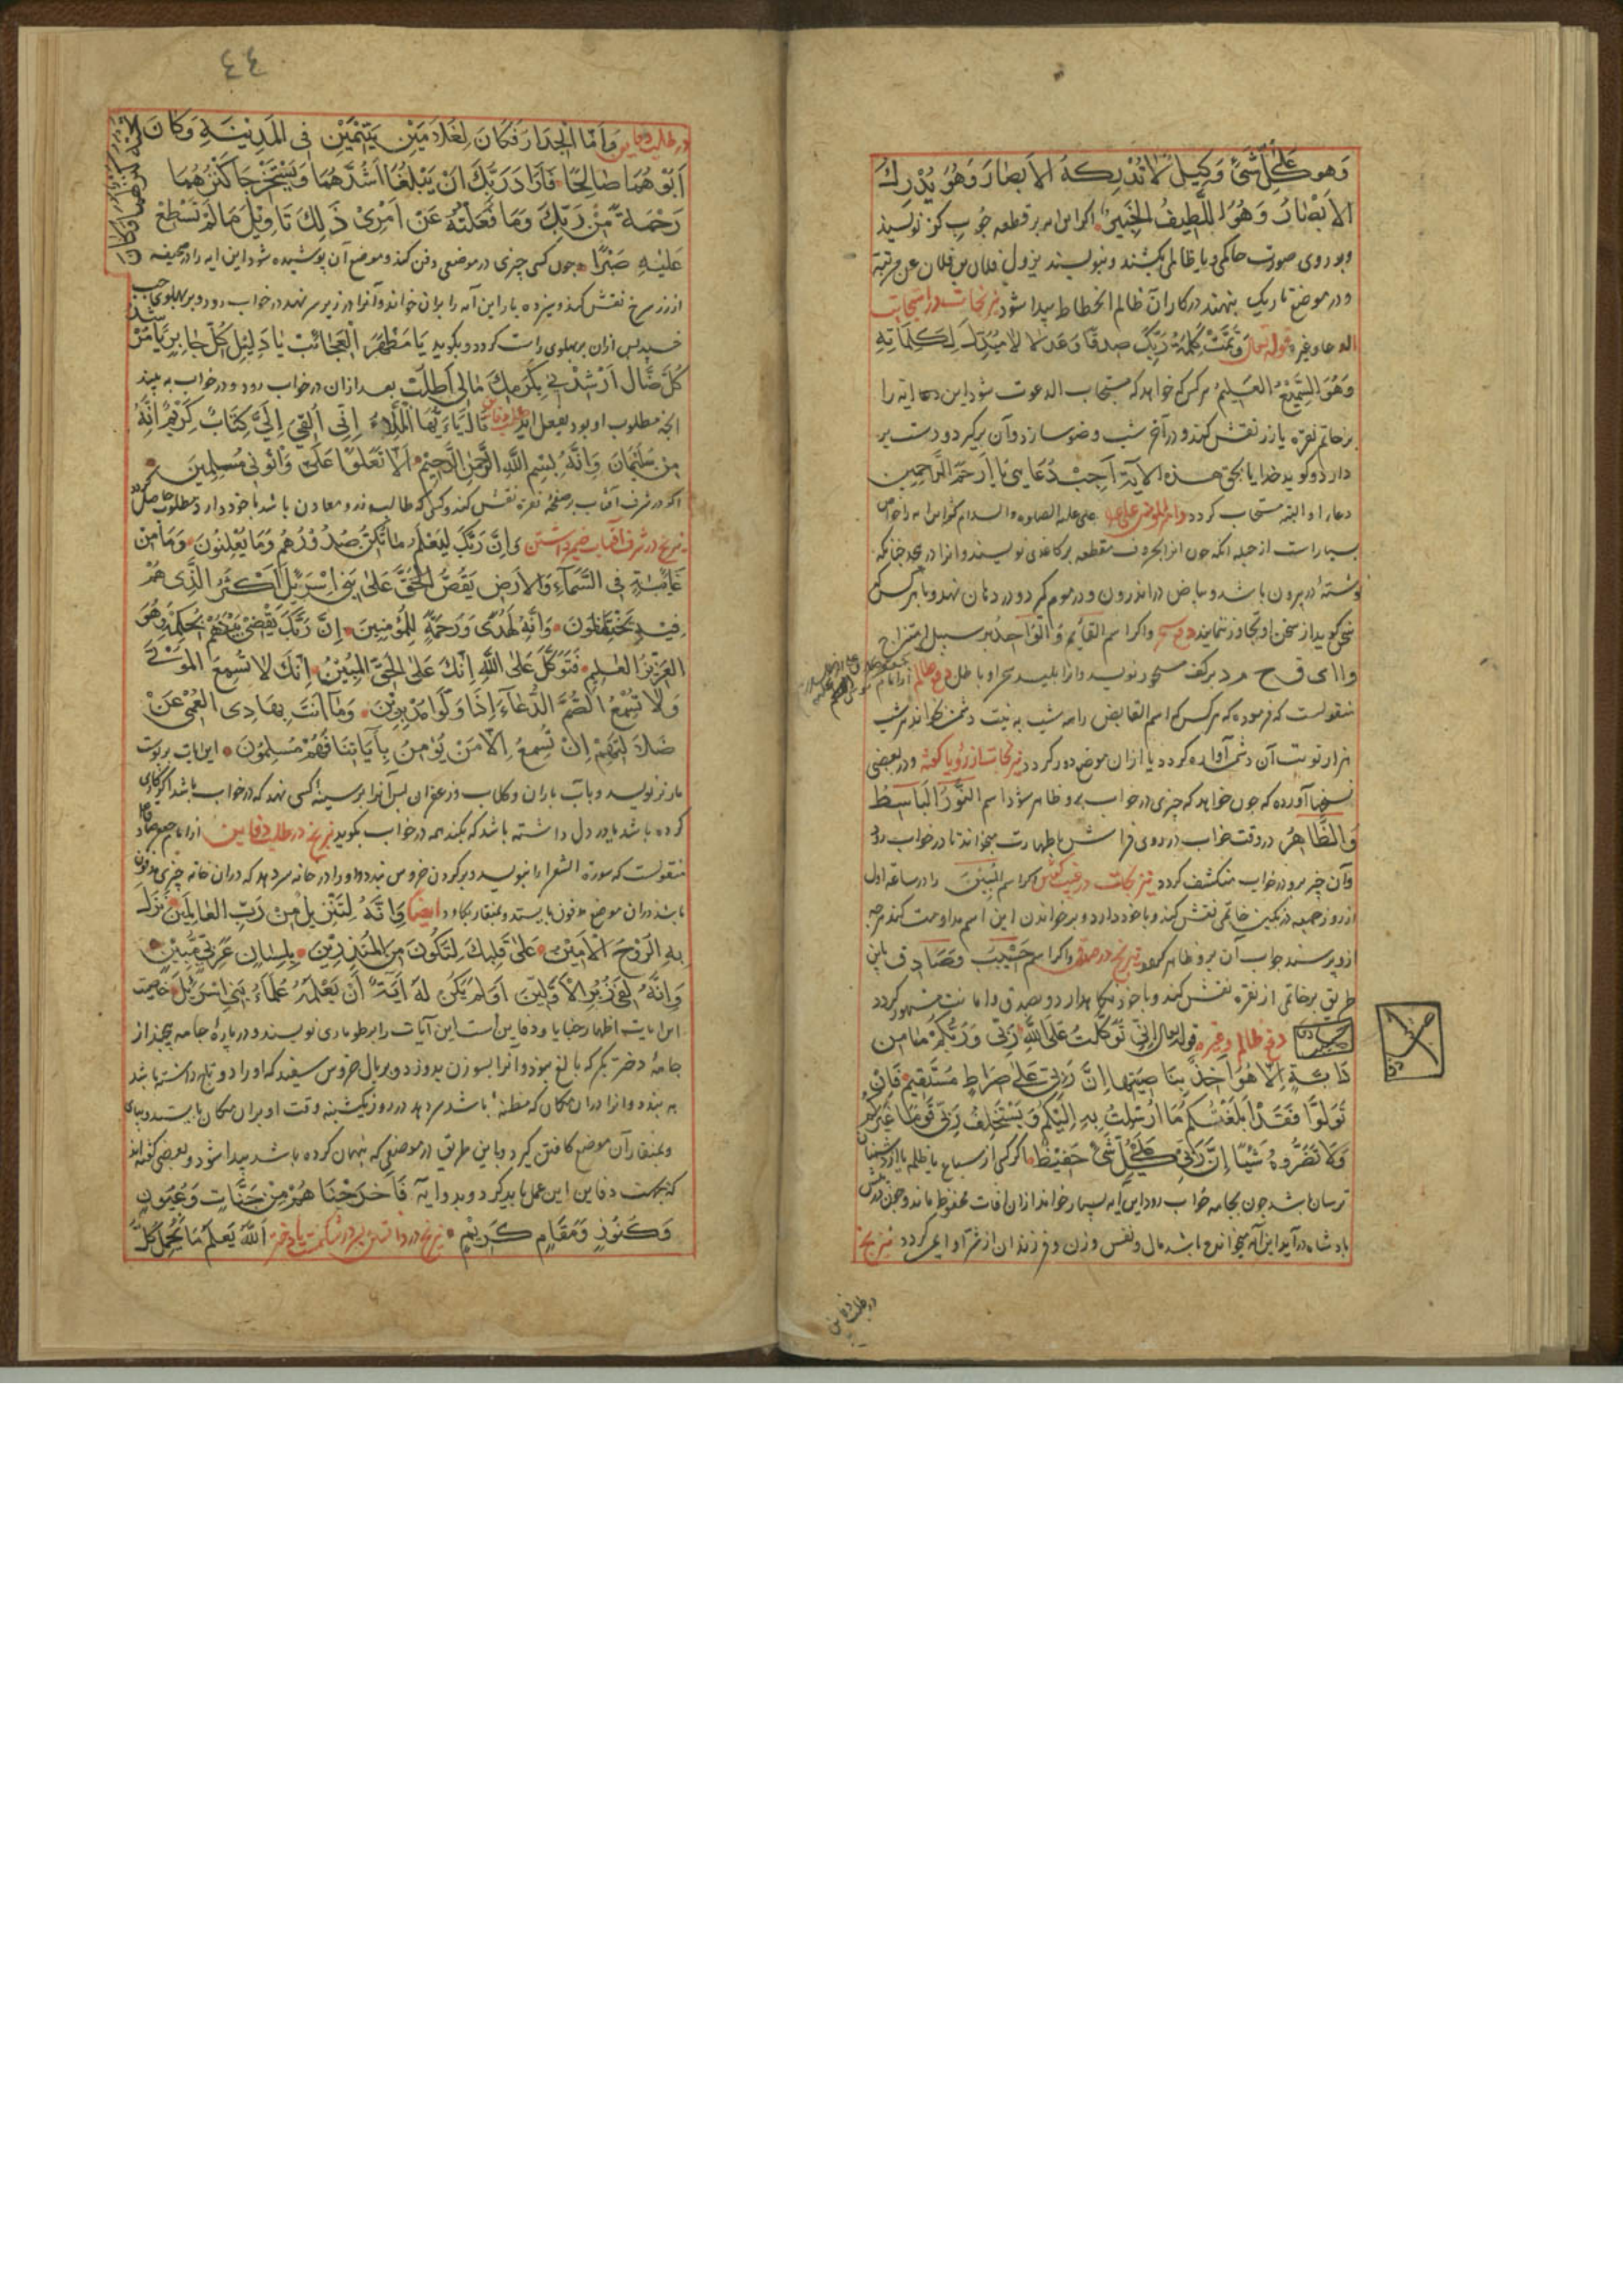 وَهُوَ عَلَىٰ كُلِّ شَیْءٍ وَكِيلٌ لَا تُدْرِكُهُ الْأَبْصَارُ وَهُوَ يُدْرِكُ
الْأَبْصَارَ وَهُوَ اللَّطِيفُ الْخَبِيرُ اكر این بر قطعه چوب کز نویسند
و بر روی صورت حاکمی یا ظالمی بکشند و بنویسند یزول فلان بن فلان عن مرتبته
و در موضع تاریک بنهند در کار آن ظالم انحطاط پیدا شود نیرنجات در استجابت
الدعا و غیره قوله تعالی وَتَمَّتْ كَلِمَةُ رَبِّكَ صِدْقًا وَعَدْلًا لَا مُبَدِّلَ لِكَلِمَاتِهِ
وَهُوَ السَّمِيعُ الْعَلِيمُ هرکس که خواهد که مستجاب الدعوت شود این آیه را
بر خاتم نقره یا زر نقش کند و در آخر شب وضو سازد و آن برگیرد و دست بر
دارد و گوید خدایا بحق هذه الآیة أَجِبْ دُعَائِی یَا أَرْحَمَ الرَّاحِمِینَ
دعاء او البته مستجاب کردد علی علیه الصلوة والسلام خواص
بسیار است از جمله آنکه چون آنرا بحروف مقطعه بر کاغذی نویسند و آنرا در پیچد چنانکه
نوشته در بیرون باشد و بیاض در اندرون و در موم گیرد و در دهان نهد و با هر کس
سخن گوید از سخن او تجاوز ننمایند دفع سحر و اکر اسم القَائِم وَالوَاحِدُ بر سبیل امتزاج
و ا ل ق ح م د بر کف مسحور نویسد و آنرا بلیسد سحر او باطل دفع ظالم از امام
منقولست که فرموده که هرکس که اسم القابض را سه شب به نیت دشمن بخواند هر شب
هزار نوبت آن دشمن آواره کردد یا از آن موضع دور کردد نیرنجات از رؤیا و در بعضی
نسخها آورده که چون خواهد که چیزی در خواب برو ظاهر شود اسم النُّورُ البَاسِطُ
وَالظَّاهِرُ در وقت خواب در روی فراش با طهارت بخواند تا در خواب رود
و آن چیز برو در خواب منکشف کردد نیرنجات در اکر اسم المُبِین را در ساعة اول
از روز جمعه در نکین خاتمی نقش کند و با خود دارد و بر خواندن این اسم مداومت کند هرچه
ازو پرسند جواب آن برو ظاهر کردد نیرنج در صدق و اکر اسم حَسِیب وصَادِق باین
طریق بر خاتمی از نقره نقش کند و با خود نکاه دارد و بصدق و امانت مشهور کردد
دفع ظالم و غیره قوله تعالی إِنِّي تَوَكَّلْتُ عَلَى اللَّهِ رَبِّي وَرَبِّكُمْ مَا مِنْ
دَابَّةٍ إِلَّا هُوَ آخِذٌ بِنَاصِيَتِهَا إِنَّ رَبِّي عَلَىٰ صِرَاطٍ مُسْتَقِيمٍ فَإِنْ
تَوَلَّوْا فَقَدْ أَبْلَغْتُكُمْ مَا أُرْسِلْتُ بِهِ إِلَيْكُمْ وَيَسْتَخْلِفُ رَبِّي قَوْمًا غَيْرَكُمْ
وَلَا تَضُرُّونَهُ شَيْئًا إِنَّ رَبِّي عَلَىٰ كُلِّ شَيْءٍ حَفِيظٌ اکر کسی از سباع یا ظالم یا از دشمنان
ترسان باشد چون بجامه خواب رود این آیه بسیار خواند از آن آفات محفوظ ماند و چون در پیش
پادشاه درآید این آیه میخواند مال و نفس و زن و فرزندان از شر او ایمن کردد نیرنج
در طلب دفاین
٤٤
در طلب دفاین وَأَمَّا الْجِدَارُ فَكَانَ لِغُلَامَيْنِ يَتِيمَيْنِ فِي الْمَدِينَةِ وَكَانَ
تَحْتَهُ كَنْزٌ لَهُمَا وَكَانَ
أَبُوهُمَا صَالِحًا فَأَرَادَ رَبُّكَ أَنْ يَبْلُغَا أَشُدَّهُمَا وَيَسْتَخْرِجَا كَنْزَهُمَا
رَحْمَةً مِنْ رَبِّكَ وَمَا فَعَلْتُهُ عَنْ أَمْرِي ذَٰلِكَ تَأْوِيلُ مَا لَمْ تَسْطِعْ
عَلَيْهِ صَبْرًا چون کسی چیزی در موضعی دفن کند و موضع آن پوشیده شود این آیه را در صحیفه
از زر سرخ نقش کند و سیزده بار این آیه را بر آن خواند و آنرا در زیر سر نهد در خواب رود و بر پهلوی چپ
خسپد پس از آن بر پهلوی راست کردد و بکوید یَا مُظْهِرَ الْعَجَائِبِ یَا دَلِیلَ كُلِّ حَائِرٍ یَا مُرْشِدَ
كُلِّ ضَالٍّ أَرْشِدْنِي بِكَرَمِكَ مَا لِي أَطْلُبُ بعد از آن در خواب رود و در خواب به بیند
آنچه مطلوب او بود بفعل آید قَالَتْ يَا أَيُّهَا الْمَلَأُ إِنِّي أُلْقِيَ إِلَيَّ كِتَابٌ كَرِيمٌ إِنَّهُ
مِنْ سُلَيْمَانَ وَإِنَّهُ بِسْمِ اللَّهِ الرَّحْمَٰنِ الرَّحِيمِ أَلَّا تَعْلُوا عَلَيَّ وَأْتُونِي مُسْلِمِينَ
اکر در شرف آفتاب بر صفحه نقره نقش کند و کسی که طالب زر و معادن باشد با خود دارد مطلوب حاصل کردد
نیرنج در شرف آفتاب وَإِنَّ رَبَّكَ لَيَعْلَمُ مَا تُكِنُّ صُدُورُهُمْ وَمَا يُعْلِنُونَ وَمَا مِنْ
غَائِبَةٍ فِي السَّمَاءِ وَالْأَرْضِ يَقُصُّ الْحَقَّ عَلَىٰ بَنِي إِسْرَائِيلَ أَكْثَرَ الَّذِي هُمْ
فِيهِ يَخْتَلِفُونَ وَإِنَّهُ لَهُدًى وَرَحْمَةٌ لِلْمُؤْمِنِينَ إِنَّ رَبَّكَ يَقْضِي بَيْنَهُمْ بِحُكْمِهِ وَهُوَ
الْعَزِيزُ الْعَلِيمُ فَتَوَكَّلْ عَلَى اللَّهِ إِنَّكَ عَلَى الْحَقِّ الْمُبِينِ إِنَّكَ لَا تُسْمِعُ الْمَوْتَىٰ
وَلَا تُسْمِعُ الصُّمَّ الدُّعَاءَ إِذَا وَلَّوْا مُدْبِرِينَ وَمَا أَنْتَ بِهَادِي الْعُمْيِ عَنْ
ضَلَالَتِهِمْ إِنْ تُسْمِعُ إِلَّا مَنْ يُؤْمِنُ بِآيَاتِنَا فَهُمْ مُسْلِمُونَ این آیات بر پوست
مار نر نویسد و بآب باران و گلاب و زعفران پس آنرا بر سینه کسی نهد که در خواب باشد اکر کاری
کرده باشد یا در دل داشته باشد که بکند همه در خواب بکوید نیرنج در طلب دفاین از امام جعفر صادق
منقولست که سورة الشعرا را بنویسد و بر کردن خروس بندد و او را در خانه سر دهد که در آن خانه چیزی مدفون
باشد در آن موضع مدفون بایستد و بمنقار بکاود ایضا وَإِنَّهُ لَتَنْزِيلُ رَبِّ الْعَالَمِينَ نَزَلَ
بِهِ الرُّوحُ الْأَمِينُ عَلَىٰ قَلْبِكَ لِتَكُونَ مِنَ الْمُنْذِرِينَ بِلِسَانٍ عَرَبِيٍّ مُبِينٍ
وَإِنَّهُ لَفِي زُبُرِ الْأَوَّلِينَ أَوَلَمْ يَكُنْ لَهُمْ آيَةً أَنْ يَعْلَمَهُ عُلَمَاءُ بَنِي إِسْرَائِيلَ خاصیت
این آیات اظهار خبایا و دفاین است این آیات را بر طوماری نویسند و در پاره جامه پیچد از
جامه دختر بکر که بالغ بود و آنرا بسوزن بدوزد و بر بال خروس سفید که او را دو تاج داشته باشد
به بندد و آنرا در آن مکان که مظنه باشد سر دهد در روز یکشنبه وقت او بر آن مکان بایستد و بپای
و بمنقار آن موضع کافتن گیرد و باین طریق در موضعی که پنهان کرده باشد پیدا شود و بعضی گفته اند
که بجهت دفاین این عمل باید کرد و بدو آیه فَأَخْرَجْنَاهُمْ مِنْ جَنَّاتٍ وَعُيُونٍ
وَكُنُوزٍ وَمَقَامٍ كَرِيمٍ نیرنج در دانستن پسر در شکمست یا دختر اللَّهُ يَعْلَمُ مَا تَحْمِلُ كُلُّ